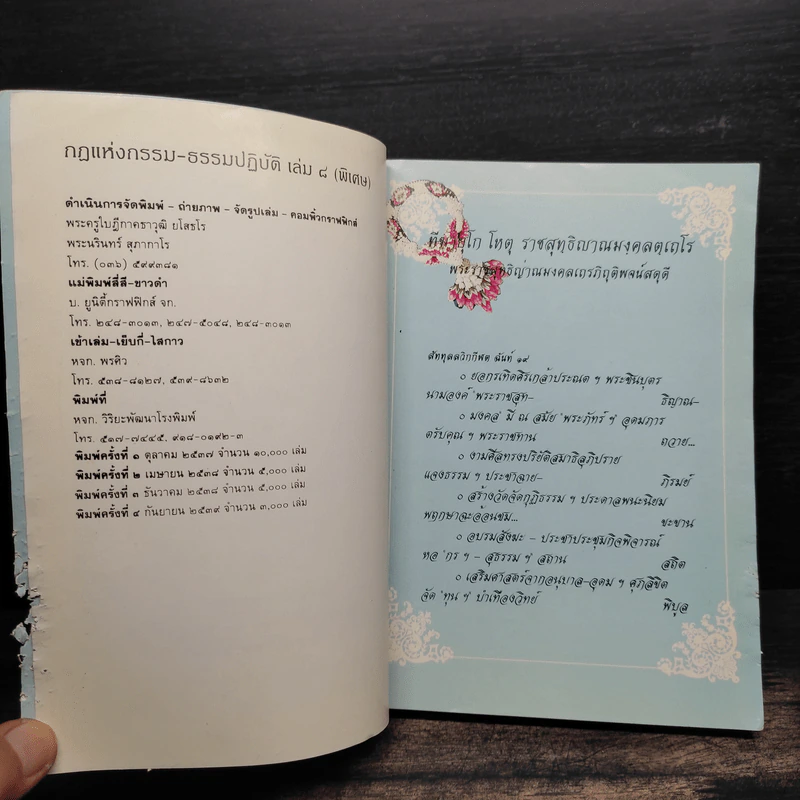 กฎแห่งกรรม-ธรรมปฏิบัติ เล่ม ๘ (พิเศษ)
ดำเนินการจัดพิมพ์ - ถ่ายภาพ - จัดรูปเล่ม - คอมพิ้วกราฟฟิกส์
พระครูใบฎีกาคธาวุฒิ ยโสธโร
พระนรินทร์ สุภากาโร
โทร. (๐๓๖) ๕๙๙๓๘๑
แม่พิมพ์สี่สี-ขาวดำ
บ. ยูนิตี้กราฟฟิกส์ จก.
โทร. ๒๔๘-๓๐๑๓, ๒๔๗-๕๐๔๘, ๒๔๘-๓๐๑๓
เข้าเล่ม-เย็บกี่-ไสกาว
หจก. พรศิว
โทร. ๕๓๘-๘๑๒๗, ๕๓๙-๘๖๓๒
พิมพ์ที่
หจก. วิริยะพัฒนาโรงพิมพ์
โทร. ๕๑๗-๗๔๔๕. ๙๑๘-๐๑๙๒-๓
พิมพ์ครั้งที่ ๑ ตุลาคม ๒๕๓๗ จำนวน ๑๐,๐๐๐ เล่ม
พิมพ์ครั้งที่ ๒ เมษายน ๒๕๓๘ จำนวน ๕,๐๐๐ เล่ม
พิมพ์ครั้งที่ ๓ ธันวาคม ๒๕๓๘ จำนวน ๕,๐๐๐ เล่ม
พิมพ์ครั้งที่ ๔ กันยายน ๒๕๓๙ จำนวน ๓,๐๐๐ เล่ม
ทีฆายุโก โหตุ ราชสุทฺธิญาณมงฺคลตฺเถโร
พระราชสุทธิญาณมงคลเถรภิถุติพจน์สดุดี
สัททุลลวิกกีฬต ฉันท์ ๑๙
๐ ยอกรเทิดศิรเกล้าประณต ฯ พระชินบุตร
นามองค์ "พระราชสุท- ธิญาณ-
๐ มงคล" มี ณ สมัย "พระภัทร์ ฯ" อุดมภาร
ตรับคุณ ฯ พระราชทาน ถวาย...
๐ งามศีลทรงปริยัติสมาธิสุภิปราย
แจงธรรม ฯ ประชาฉาย- ภิรมย์
๐ สร้างวัดจัดกุฏิธรรม ฯ ประดาลพนะนิยม
พฤกษาฉะอ้อนชม... ชะขาน
๐ อบรมสังฆะ - ประชาประชุมกิจพิจารณ์
หอ "กร ฯ - สุธรรม ฯ" สถาน สถิต
๐ เสริมศาสตร์จากอนุบาล-อุดม ฯ ศุภลิขิต
จัด "ทุน ฯ" บำเทืองวิทย์ พิบูล